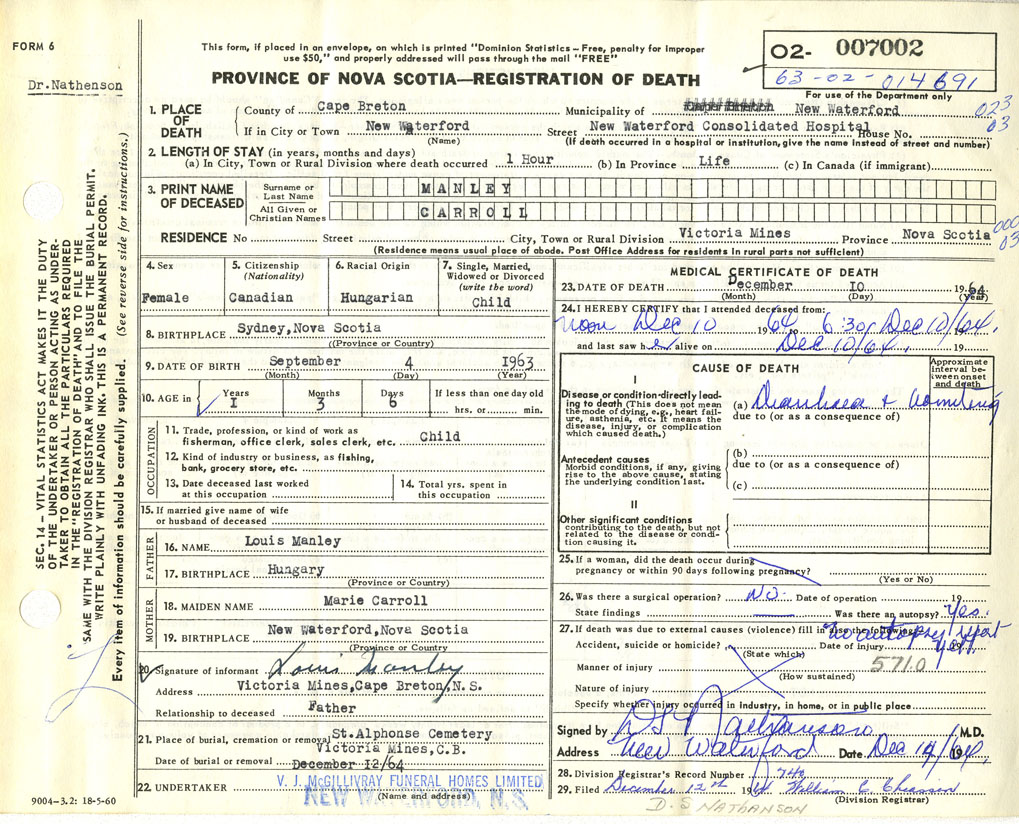 FORM 6
This form, if placed in an envelope, on which is printed "Dominion Statistics – Free, penalty for improper
use $50," and properly addressed will pass through the mail "FREE"
PROVINCE OF NOVA SCOTIA—REGISTRATION OF DEATH
02- 007002
63-02-014691
For use of the Department only
Dr.Nathenson
SEC. 14 – VITAL STATISTICS ACT MAKES IT THE DUTY
OF THE UNDERTAKER OR PERSON ACTING AS UNDER-
TAKER TO OBTAIN ALL THE PARTICULARS REQUIRED
IN THE "REGISTRATION OF DEATH" AND TO FILE THE
SAME WITH THE DIVISION REGISTRAR WHO SHALL ISSUE THE BURIAL PERMIT.
WRITE PLAINLY WITH UNFADING INK. THIS IS A PERMANENT RECORD.
Every item of information should be carefully supplied. (See reverse side for instructions.)
1. PLACE OF DEATH
County of Cape Breton Municipality of New Waterford
023
03
If in City or Town New Waterford Street New Waterford Consolidated Hospital House No.
(Name) (If death occurred in a hospital or institution, give the name instead of street and number)
2. LENGTH OF STAY (in years, months and days)
(a) In City, Town or Rural Division where death occurred 1 Hour (b) In Province Life (c) In Canada (if immigrant)
3. PRINT NAME OF DECEASED
Surname or Last Name MANLEY
All Given or Christian Names CARROLL
000
03
RESIDENCE No Street City, Town or Rural Division Victoria Mines Province Nova Scotia
(Residence means usual place of abode. Post Office Address for residents in rural parts not sufficient)
4. Sex
Female
5. Citizenship (Nationality)
Canadian
6. Racial Origin
Hungarian
7. Single, Married, Widowed or Divorced (write the word)
Child
8. BIRTHPLACE Sydney,Nova Scotia
((Province or Country)
9. DATE OF BIRTH September 4 1963
(Month) (Day) (Year)
10. AGE in Years Months Days If less than one day old
1 3 6 hrs. or min.
OCCUPATION
11. Trade, profession, or kind of work as
fisherman, office clerk, sales clerk, etc. Child
12. Kind of industry or business, as fishing,
bank, grocery store, etc.
13. Date deceased last worked
at this occupation
14. Total yrs. spent in
this occupation
15. If married give name of wife
or husband of deceased
FATHER
16. NAME Louis Manley
17. BIRTHPLACE Hungary
(Province or Country)
MOTHER
18. MAIDEN NAME Marie Carroll
19. BIRTHPLACE New Waterford,Nova Scotia
(Province or Country)
20. Signature of informant Louis Manley
Address Victoria Mines,Cape Breton,N.S.
Relationship to deceased Father
21. Place of burial, cremation or removal St.Alphonse Cemetery
Victoria Mines,C.B.
Date of burial or removal December 12/64
22. UNDERTAKER V. J. McGILLIVRAY FUNERAL HOMES LIMITED
NEW WATERFORD, N.S.
(Name and address)
9004-3.2: 18-5-60
MEDICAL CERTIFICATE OF DEATH
23. DATE OF DEATH December 10 1964
(Month) (Day) (Year)
24. I HEREBY CERTIFY that I attended deceased from:
noon Dec 10 1964 6:30 Dec 10/64. 19
and last saw her alive on Dec 10/64, 19
CAUSE OF DEATH
Approximate interval between onset and death
I
Disease or condition directly lead-
ing to death (This does not mean
the mode of dying, e.g., heart fail-
ure, asthenia, etc. It means the
disease, injury, or complication
which caused death.)
(a) Diarrhoea + vomiting
due to (or as a consequence of)
Antecedent causes
Morbid conditions, if any, giving
rise to the above cause, stating
the underlying condition last.
(b)
due to (or as a consequence of)
(c)
II
Other significant conditions
contributing to the death, but not
related to the disease or condi-
tion causing it.
25. If a woman, did the death occur during
pregnancy or within 90 days following pregnancy?
(Yes or No)
26. Was there a surgical operation? No. Date of operation 19
State findings Was there an autopsy? Yes.
27. If death was due to external causes (violence) fill in also the following:
no autopsy report yet.
Accident, suicide or homicide? Date of injury 19
(State which)
5710
Manner of injury
(How sustained)
Nature of injury
Specify whether injury occurred in industry, in home, or in public place
Signed by Nathanson M.D.
Address New Waterford Date Dec 14/64 19
28. Division Registrar's Record Number 742
29. Filed December 12th 1964 William C Chiasson
(Division Registrar)
D. S NATHANSON